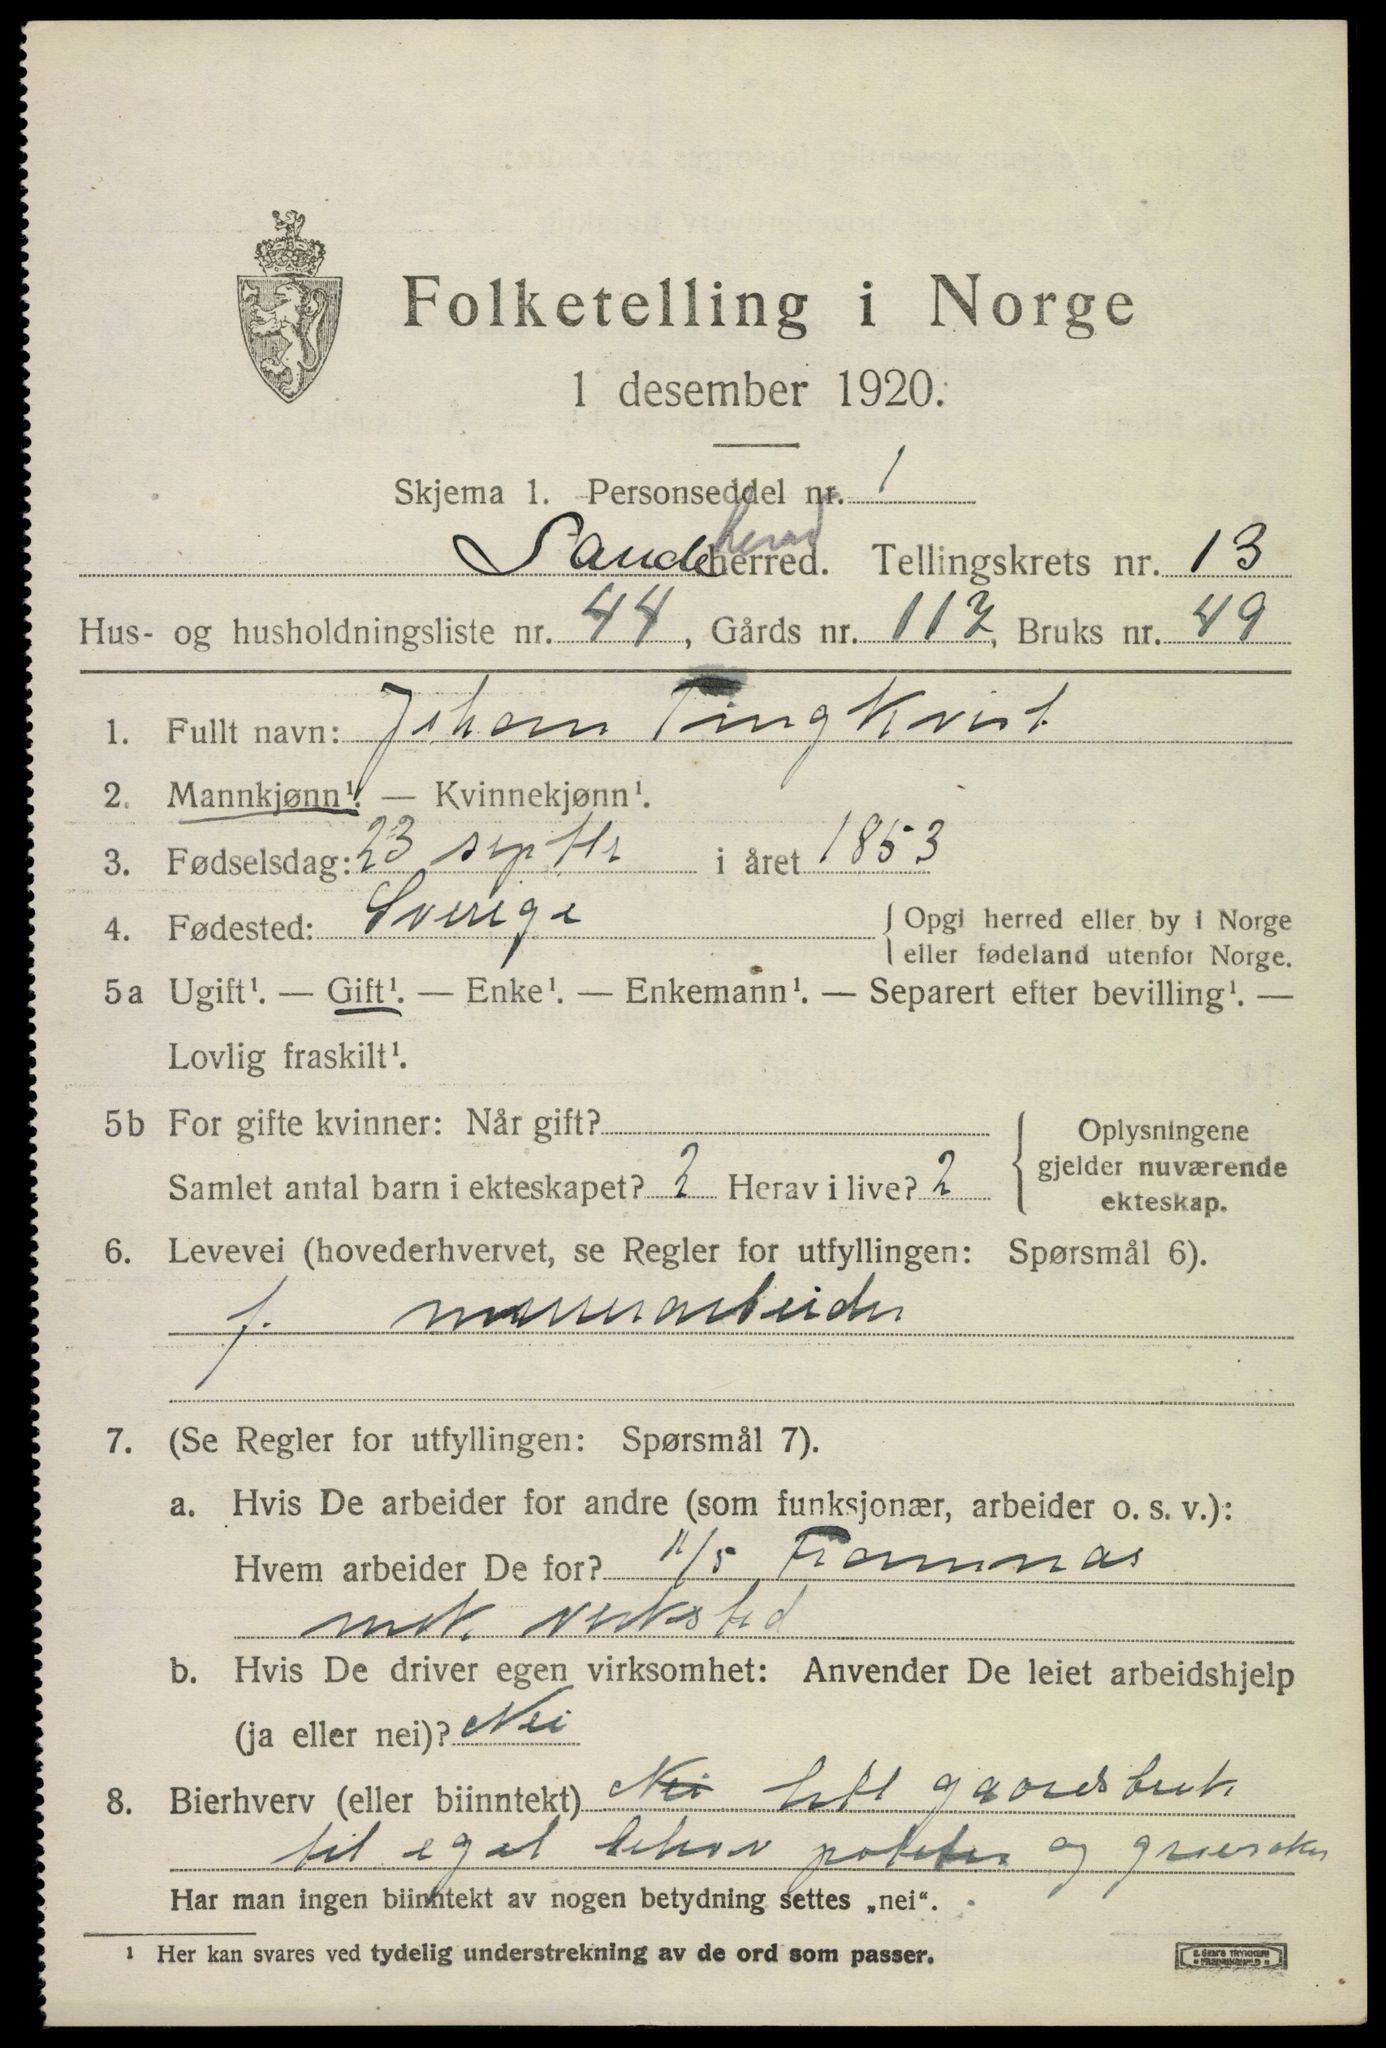 Folketelling i Norge
1 desember 1920.
Skjema 1. Personseddel nr. 1
Sandeherred herred. Tellingskrets nr. 13
Hus- og husholdningsliste nr. 44, Gårds nr. 112, Bruks nr. 49
1. Fullt navn: Johan Tingkvist
2. Mannkjønn¹. — Kvinnekjønn¹.
3. Fødselsdag: 23 septbr i året 1853
4. Fødested: Sverige { Opgi herred eller by i Norge
eller fødeland utenfor Norge.
5a Ugift¹. — Gift¹. — Enke¹. — Enkemann¹. — Separert efter bevilling¹. —
Lovlig fraskilt¹.
5b For gifte kvinner: Når gift?
Samlet antal barn i ekteskapet? 2 Herav i live? 2
{ Oplysningene
gjelder nuværende
ekteskap.
6. Levevei (hovederhvervet, se Regler for utfyllingen: Spørsmål 6).
f. murerarbeider
7. (Se Regler for utfyllingen: Spørsmål 7).
a. Hvis De arbeider for andre (som funksjonær, arbeider o. s. v.):
Hvem arbeider De for? A/S Framnæs
mek. verksted
b. Hvis De driver egen virksomhet: Anvender De leiet arbeidshjelp
(ja eller nei)? Nei
8. Bierhverv (eller biinntekt) Nei litt gaardsbruk
til eget behov poteter og grønsaker
Har man ingen biinntekt av nogen betydning settes „nei“.
¹ Her kan svares ved tydelig understrekning av de ord som passer.